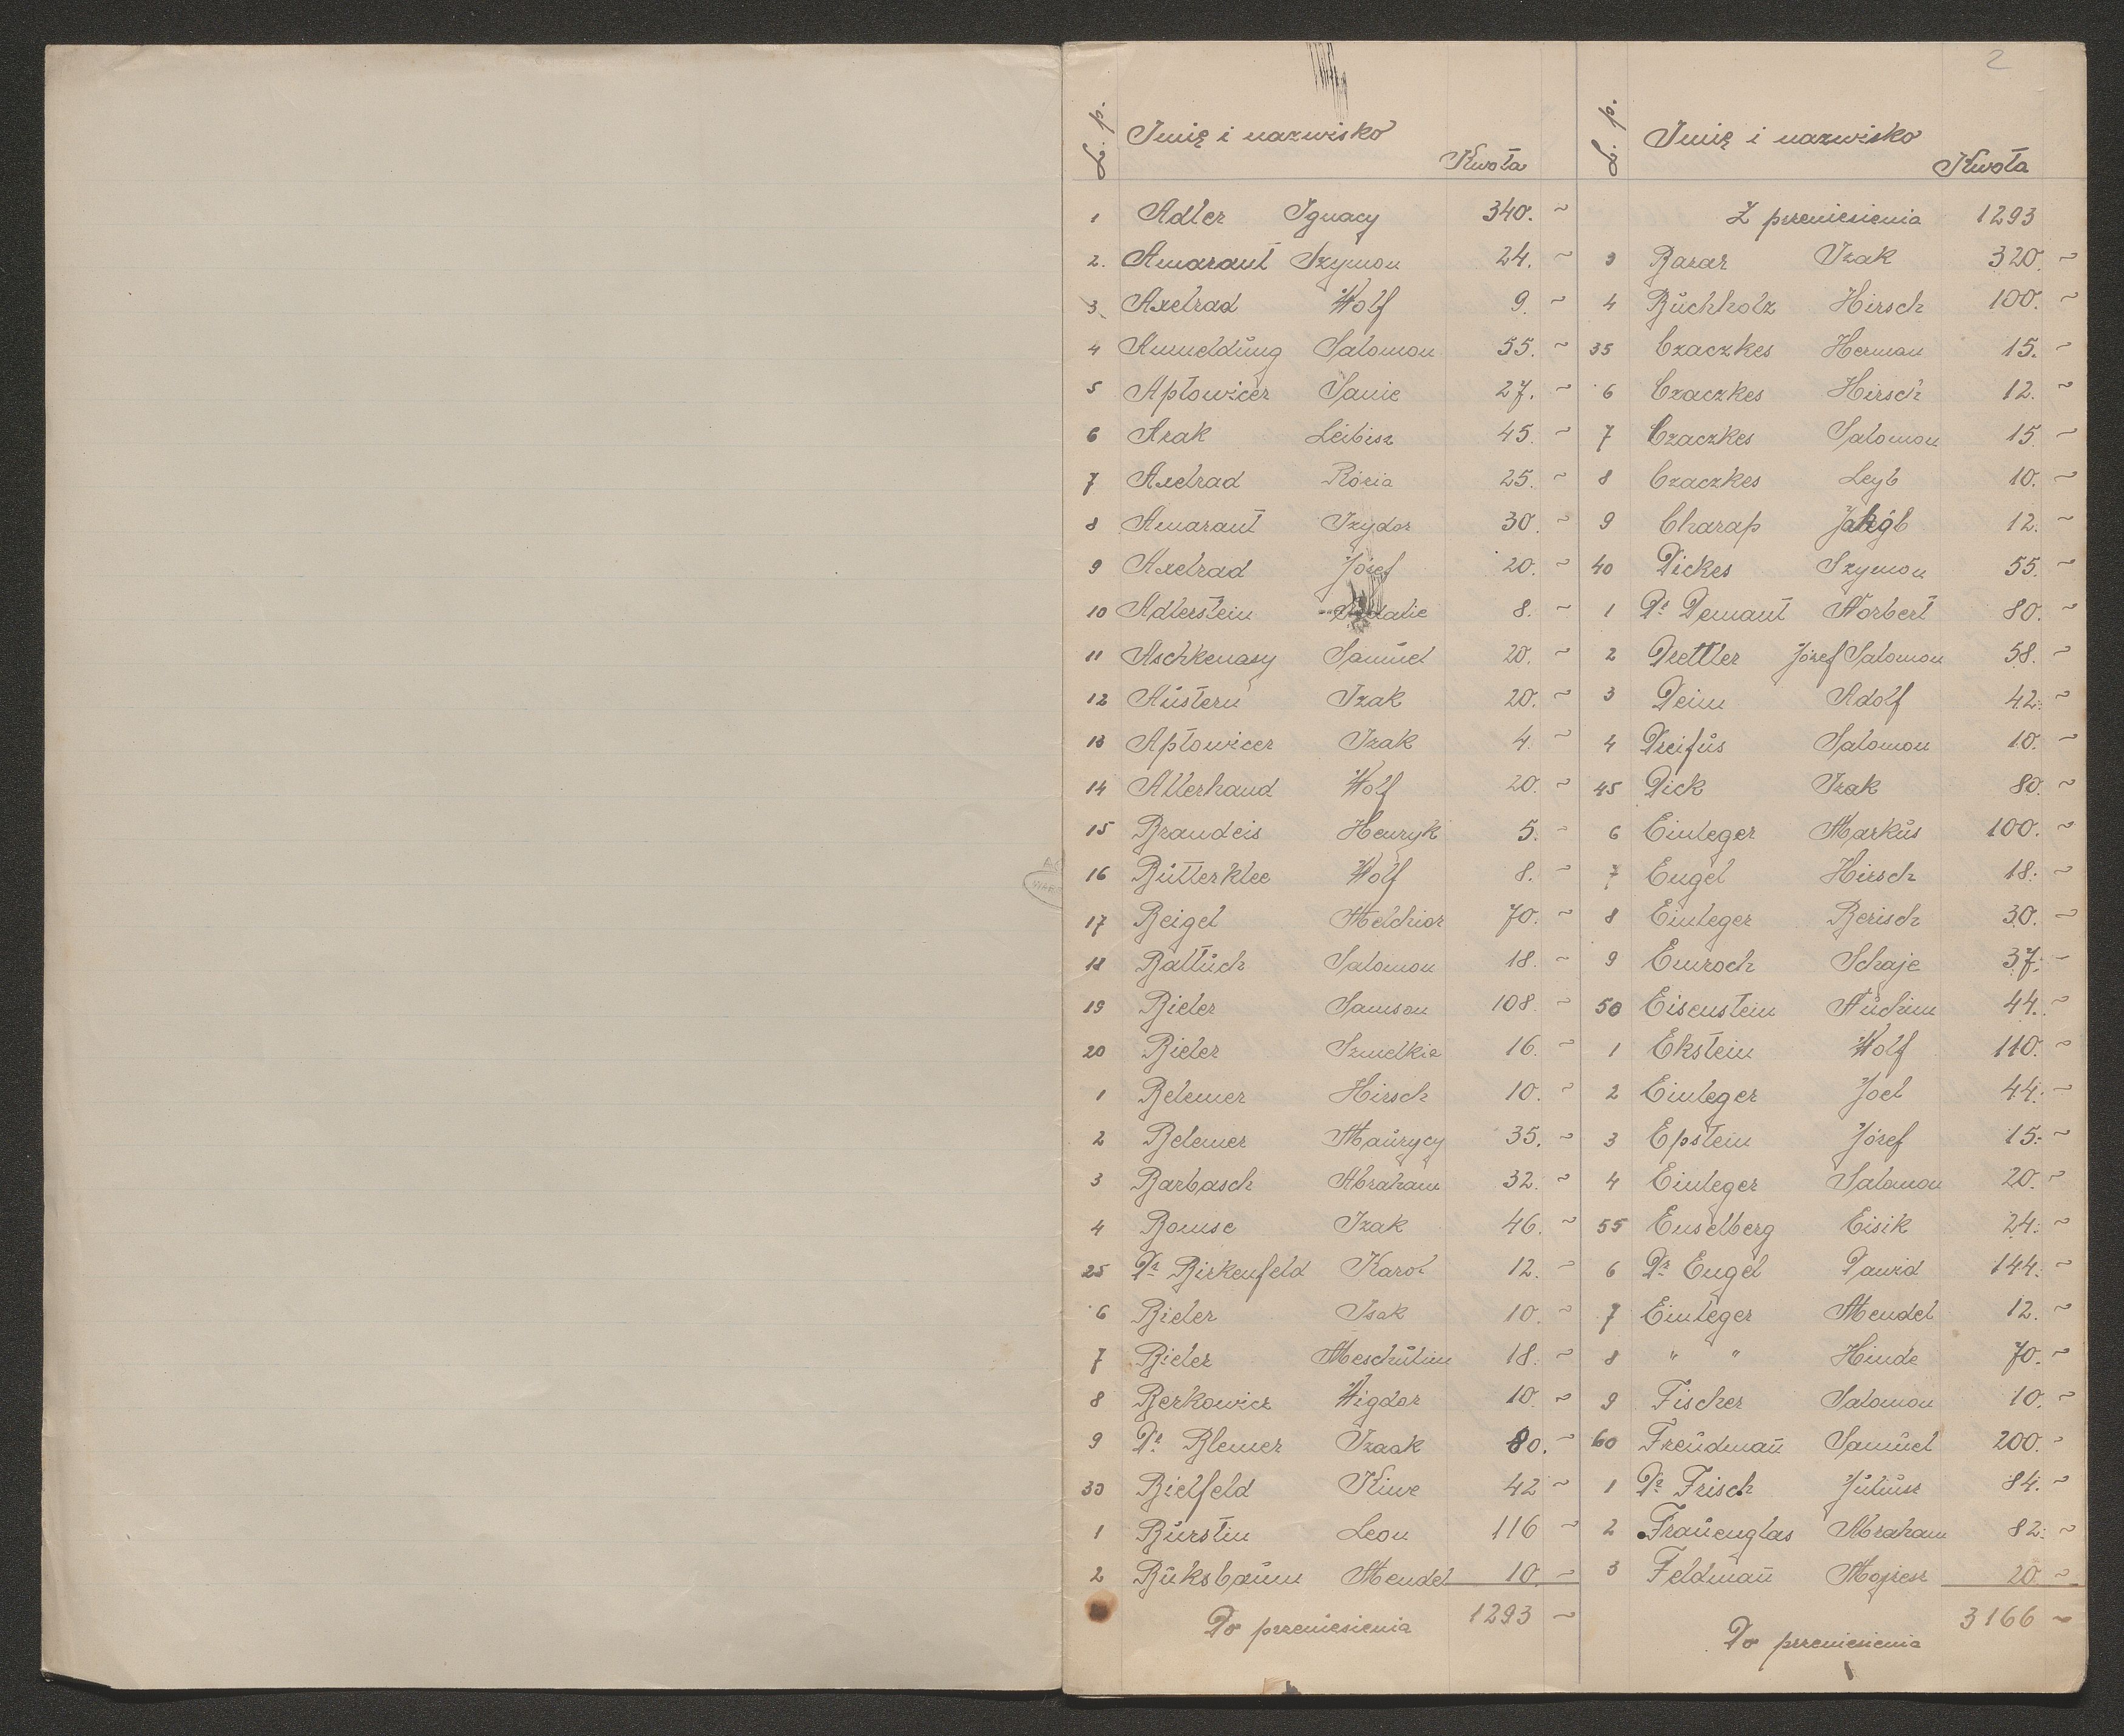 2
L. p. Imię i nazwisko Kwota
1 Adler Ignacy 340. ~
2. Amarant Szymon 24. ~
3. Axelrad Wolf 9. ~
4 Anmeldŭng Salomon 55. ~
5 Aptowicer Sanie 27. ~
6 Arak Leibisz 45. ~
7 Axelrad Rózia 25. ~
8 Amarant Izydor 30. ~
9 Axelrad Józef 20. ~
10 Adlerstein 8. ~
11 Aschkenasy Samŭel 20. ~
12 Aŭstern Izak 20. ~
13 Aptowicer Izak 4. ~
14 Allerhand Wolf 20. ~
15 Brandeis Henryk 5. ~
16 Bŭtterklee Wolf 8. ~
17 Beigel Melchior 70. ~
18 Baltŭch Salomon 18. ~
19 Bieler Samson 108. ~
20 Bieler Szmelkie 16. ~
1 Belemer Hirsch 10. ~
2 Belemer Maŭrycy 35. ~
3 Barbasch Abraham 32. ~
4 Bomse Izak 46. ~
25 Dr Birkenfeld Karol 12. ~
6 Bieler Isak 10. ~
7 Bieler Meschŭlim 18. ~
8 Berkowicz Wigdor 10. ~
9 Dr Blemer Izaak 80. ~
30 Bielfeld Kiwe 42 ~
1 Bŭrstin Leon 116 ~
2 Bŭksbaŭm Mendel 10. ~
Do przeniesienia 1293 ~
L. p. Imię i nazwisko Kwota
Z przeniesienia 1293
3 Barar Izak 320. ~
4 Bŭchholz Hirsch 100. ~
35 Czaczkes Herman 15. ~
6 Czaczkes Hirsch 12. ~
7 Czaczkes Salomon 15 ~
8 Czaczkes Leyb 10. ~
9 Charap Jakób 12. ~
40 Dickes Szymon 55. ~
1 Dr Demant Norbert 80. ~
2 Drettler Józef Salomon 58. ~
3 Deim Adolf 42. ~
4 Dreifŭs Salomon 10. ~
45 Dick Izak 80. ~
6 Einleger Markŭs 100. ~
7 Engel Hirsch 18. ~
8 Einleger Berisch 30. ~
9 Emroch Schaje 37. ~
50 Eisenstein Nŭchim 44. ~
1 Ekstein Wolf 110. ~
2 Einleger Joel 44. ~
3 Epstein Józef 15. ~
4 Einleger Salomon 20. ~
55 Enselberg Eisik 24. ~
6 Dr Engel Dawid 144. ~
7 Einleger Mendel 12. ~
8 " " Hinde 70. ~
9 Fischer Salomon 10. ~
60 Freŭdman̄ Samŭel 200. ~
1 Dr Frisch Jŭliŭsz 84. ~
2 Fraŭenglas Abraham 82. ~
3 Feldman̄ Mojżesz 20. ~
Do przeniesienia 3166 ~